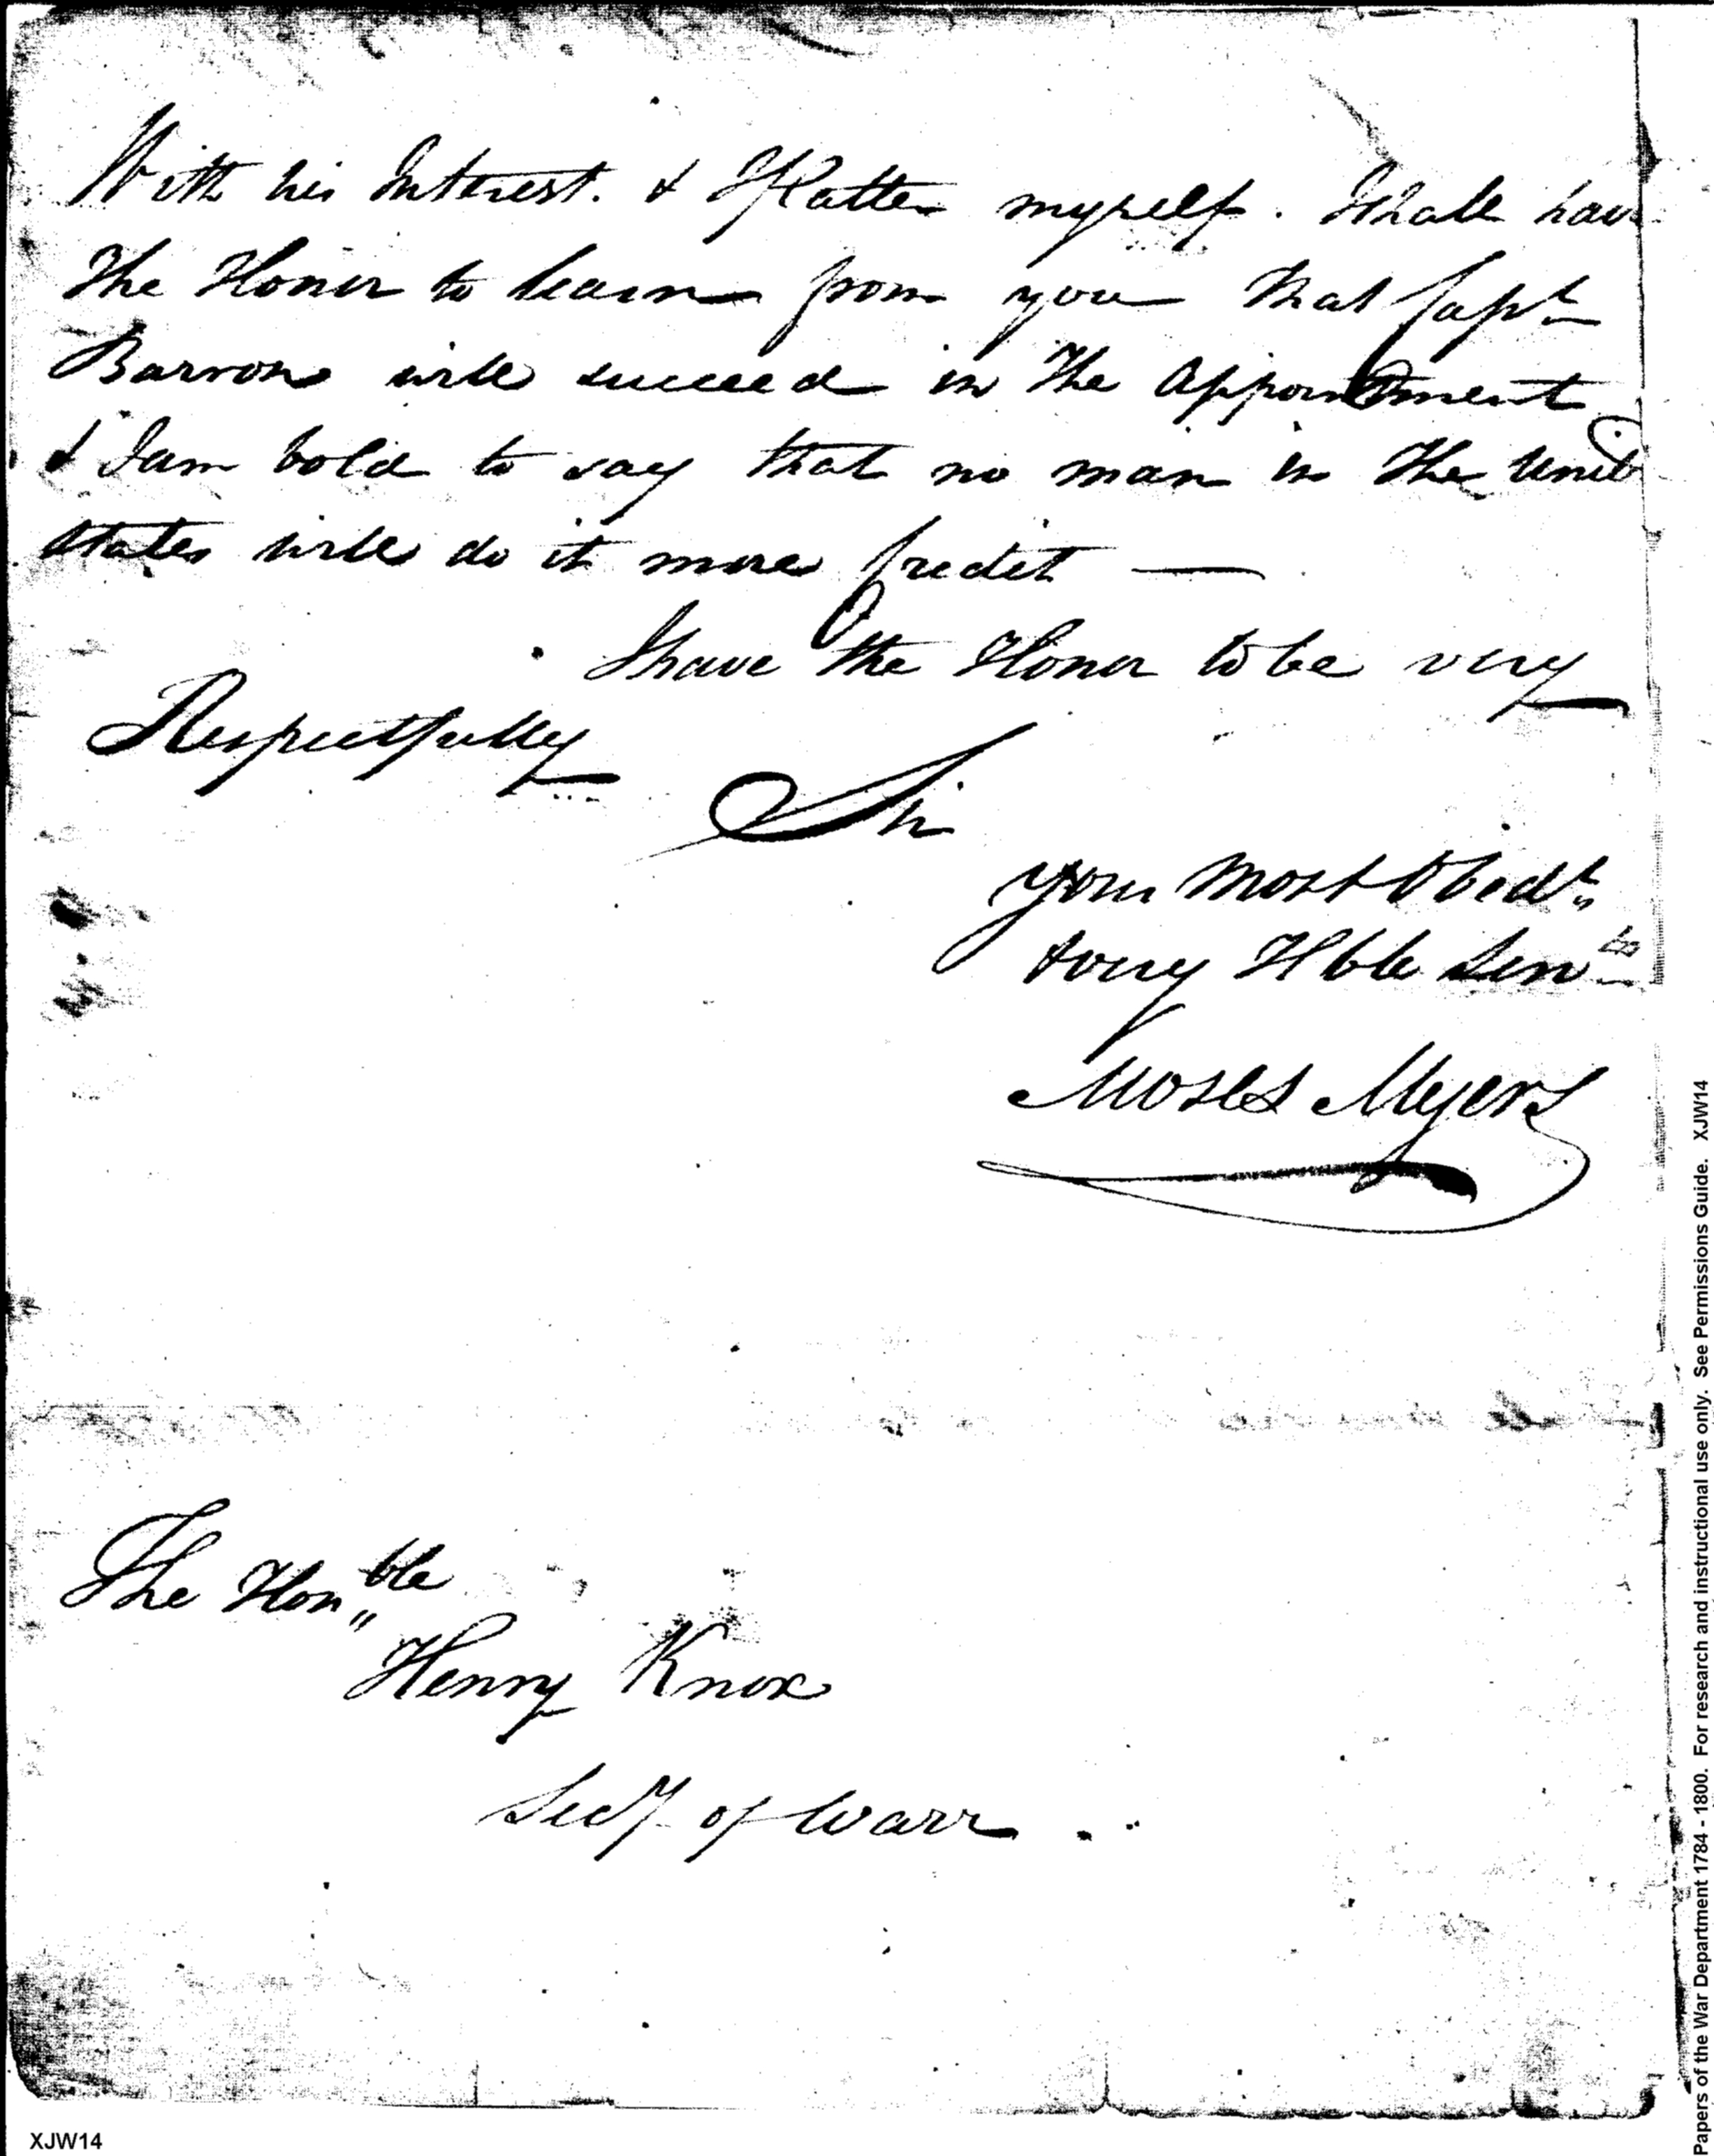 With his Interest. & I flatter myself. I shall have
the Honor to learn from you that Capt
Barron will succeed in the Appointment
& I am bold to say that no man in the Unit
States will do it more Credit —
I have the Honor to be very
Respectfully
Sir
Your Most Obedt
& very Hble Servt
Moses Myers
The Honble
Henry Knox
Secy of Warr
XJW14
Papers of the War Department 1784 - 1800. For research and instructional use only. See Permissions Guide. XJW14